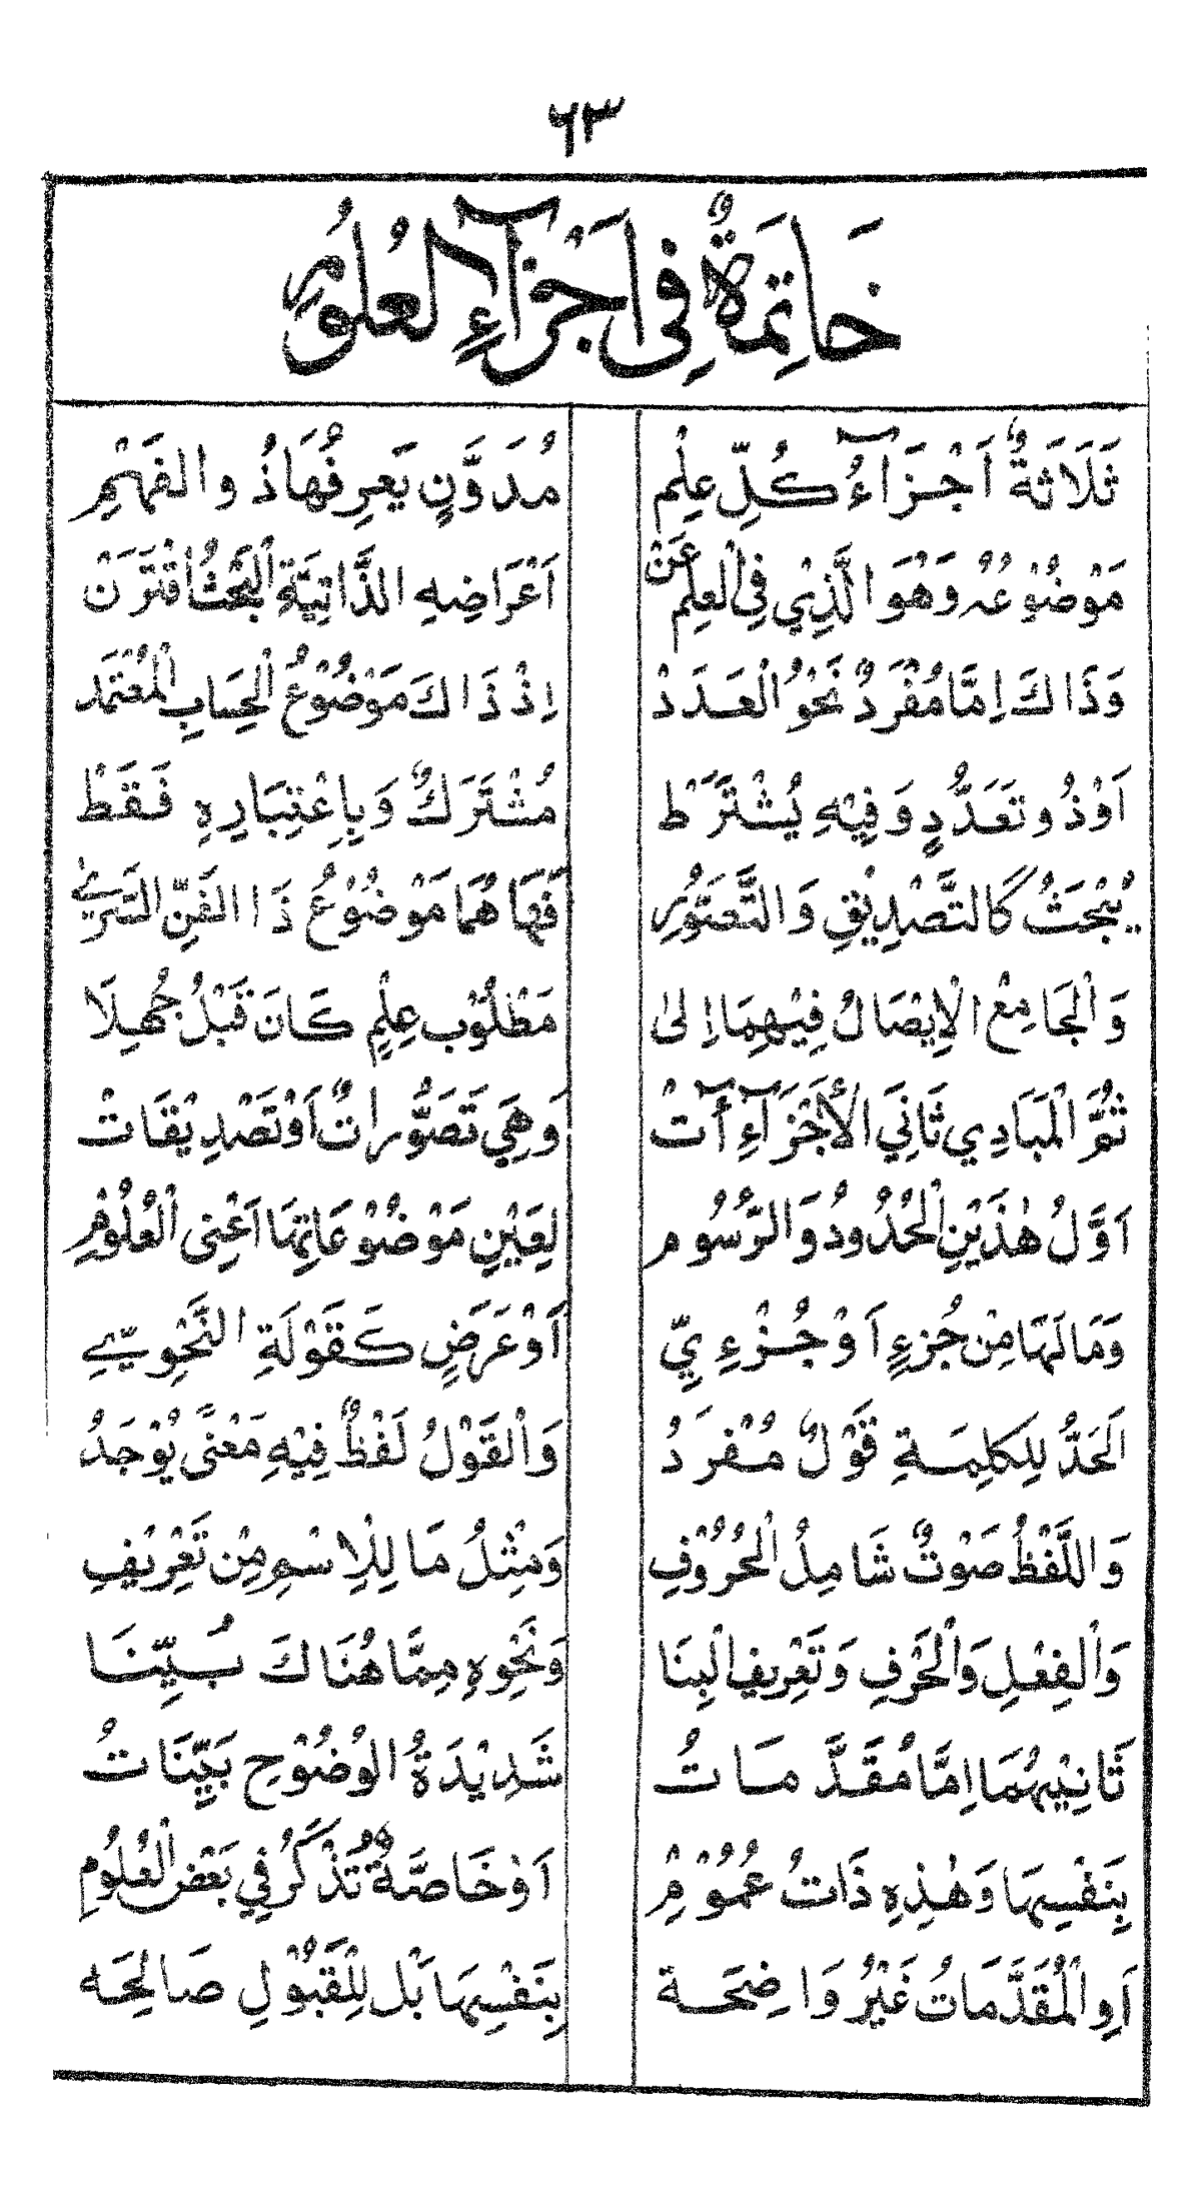 ٦٣
خَاتِمَةٌ فِى اَجْزَآءِ الْعُلُوْمِ
ثَلَاثَةٌ اَجْزَآءُ كُلِّ عِلْمِ مُدَوَّنٍ يَعرِفُهَا ذُو الفَهْمِ
مَوْضُوْعُهُ وَهْوَ الَّذِيْ فِي الْعِلْمِ عَنْ اَعْرَاضِهِ الذَّاتِيَّةِ الْبَحْثُ اقْتَرَنْ
وَذَاكَ اِمَّا مُفْرَدٌ نَحْوُ الْعَدَدْ اِذْ ذَاكَ مَوْضُوْعُ الْحِسَابِ الْمُعْتَمَد
اَوْ ذُو تَعَدُّدٍ وَفِيْهِ يُشْتَرَطْ مُشْتَرَكٌ وَبِاعْتِبَارِهِ فَقَطْ
يُبْحَثُ كَالتَّصْدِيْقِ وَالتَّصَوُّرِ فَهَاهُمَا مَوْضُوْعُ ذَا الفَنِّ السَّرِيْ
وَالْجَامِعُ الْاِيْصَالُ فِيْهِمَا اِلىٰ مَطْلُوْبِ عِلْمٍ كَانَ قَبْلُ جُهِلَا
ثُمَّ الْمَبَادِي ثَانِيَ الْأَجْزَآءِ آتْ وَهِيَ تَصَوُّرَاتٌ اَوْ تَصْدِيْقَاتْ
اَوَّلُ هٰذَيْنِ الْحُدُودُ وَالرُّسُوم لِعَيْنِ مَوْضُوْعَاتِهَا اَعْنِى الْعُلُوْم
وَمَا لَهَا مِنْ جُزءٍ اَوْ جُزْءِيِّ اَوْ عَرَضٍ كَقَوْلَةِ النَّحْوِيِّ
اَلحَدُّ لِلكَلِمَةِ قَوْلٌ مُفْرَدُ وَالْقَوْلُ لَفْظٌ فِيْهِ مَعْنًى يُوْجَدُ
وَاللَّفْظُ صَوْتٌ شَامِلُ الْحُرُوْفِ وَمِثْلُ مَا لِلْاِسْمِ مِنْ تَعْرِيْفِ
وَالْفِعْلِ وَالْحَرْفِ وَتَعْرِيفِ الْبِنَا وَنَحْوِهِ مِمَّا هُنَاكَ بُيِّنَا
ثَانِيْهُمَا اِمَّا مُقَدَّمَاتُ شَدِيْدَةُ الوُضُوْحِ بَيِّنَاتُ
بِنَفْسِهَا وَهٰذِهِ ذَاتُ عُمُوْمْ اَوْ خَاصَّةٌ تُذْكَرُ فِي بَعْضِ الْعُلُومِ
اَوِ الْمُقَدَّمَاتُ غَيْرُ وَاضِحَة بِنَفْسِهَا بَلْ لِلْقَبُوْلِ صَالِحَه